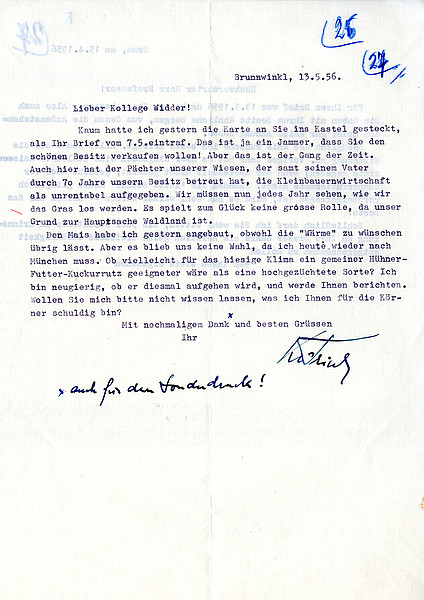 26
27
Brunnwinkl, 13.5.56.
Lieber Kollege Widder!
Kaum hatte ich gestern die Karte an Sie ins Kastel gesteckt,
als Ihr Brief vom 7.5.eintraf. Das ist ja ein Jammer, dass Sie den
schönen Besitz verkaufen wollen! Aber das ist der Gang der Zeit.
Auch hier hat der Pächter unserer Wiesen, der samt seinem Vater
durch 7o Jahre unsern Besitz betreut hat, die Kleinbauernwirtschaft
als unrentabel aufgegeben. Wir müssen nun jedes Jahr sehen, wie wir
das Gras los werden. Es spielt zum Glück keine grosse Rolle, da unser
Grund zur Hauptsache Waldland ist.
Den Mais habe ich gestern angebaut, obwohl die "Wärme" zu wünschen
übrig lässt. Aber es blieb uns keine Wahl, da ich heute wieder nach
München muss. Ob vielleicht für das hiesige Klima ein gemeiner Hühner-
Futter-Kuckurrutz geeigneter wäre als eine hochgezüchtete Sorte? Ich
bin neugierig, ob er diesmal aufgehen wird, und werde Ihnen berichten.
Wollen Sie mich bitte nicht wissen lassen, was ich Ihnen für die Kör-
ner schuldig bin?
x
Mit nochmaligem Dank und besten Grüssen
Ihr
x auch für den Sonderdruck!